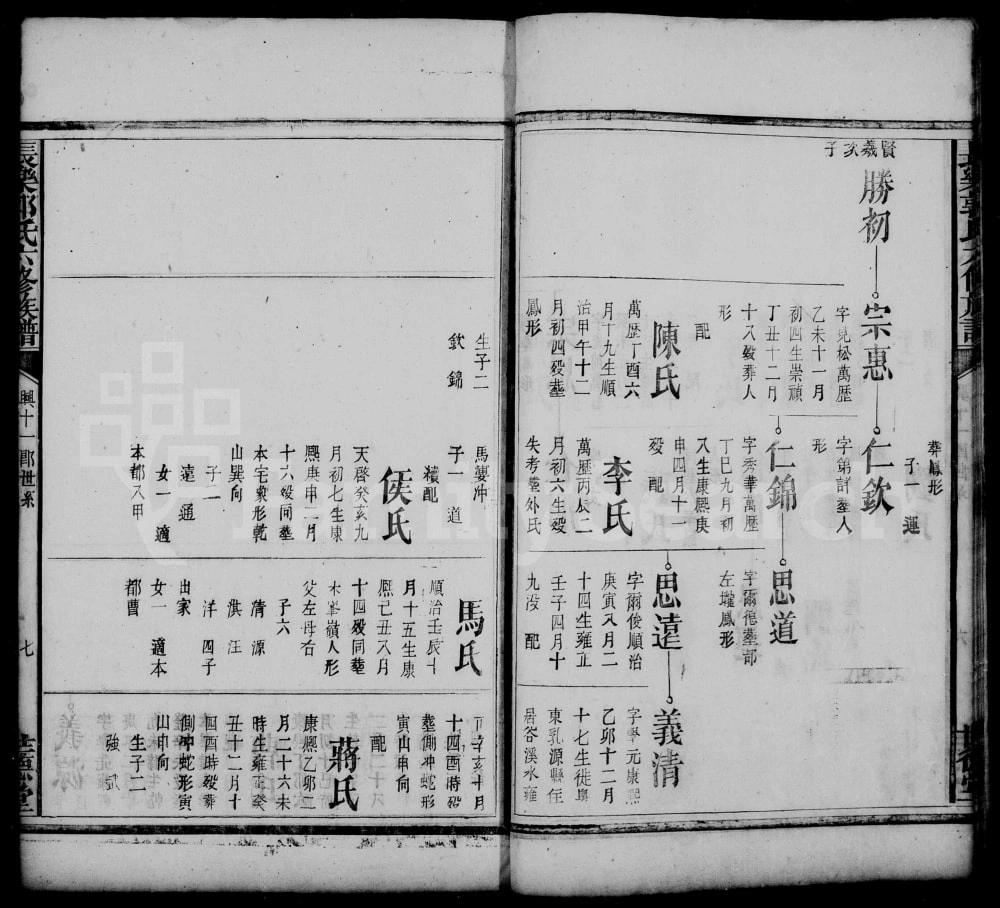 賢羲次子
勝初
宗惠
字見松萬歷
乙未十一月
初四生崇禎
丁丑十二月
十八歿葬人
形
配
陳氏
萬歷丁酉六
月十九生順
治甲午十二
月初四歿葬
鳳形
生子二
欽 錦
葬鳳形
子一 運
仁欽
字第計葬人
形
仁錦
字秀華萬歷
丁巳九月初
八生康熙庚
申四月十一
歿 配
李氏
萬歷丙辰二
月初六生歿
失考葬外氏
馬婆冲
子一 道
續配
侯氏
天啓癸亥九
月初七生康
熙庚申二月
十六歿同葬
本宅象形乾
山巽向
子二
遠 通
女一 適
本都八甲
思道
字爾德葬部
左壠鳳形
思遠
字爾俊順治
庚寅八月二
十四生雍正
壬子四月十
九歿 配
馬氏
順治壬辰十
月十五生康
熙己丑八月
十四歿同葬
木峯嶺人形
父左母右
子六
清 源
淇 汪
洋 四子
出家
女一 適本
都曹
義清
字學元康熙
乙卯十二月
十七生徙粵
東乳源縣住
居谷溪水雍
正辛亥十月
十四酉時歿
葬側冲蛇形
寅山申向
配
蔣氏
康熙乙卯二
月二十六未
時生雍正癸
丑十二月十
四酉時歿葬
側冲蛇形寅
山申向
生子二
強 貳
長樂郭氏六修族譜
興十一郎世系
七